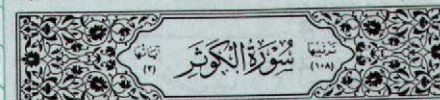 ترتيبها
(١٠٨)
سُورَةُ الْكَوْثَرِ
آياتها
(٣)